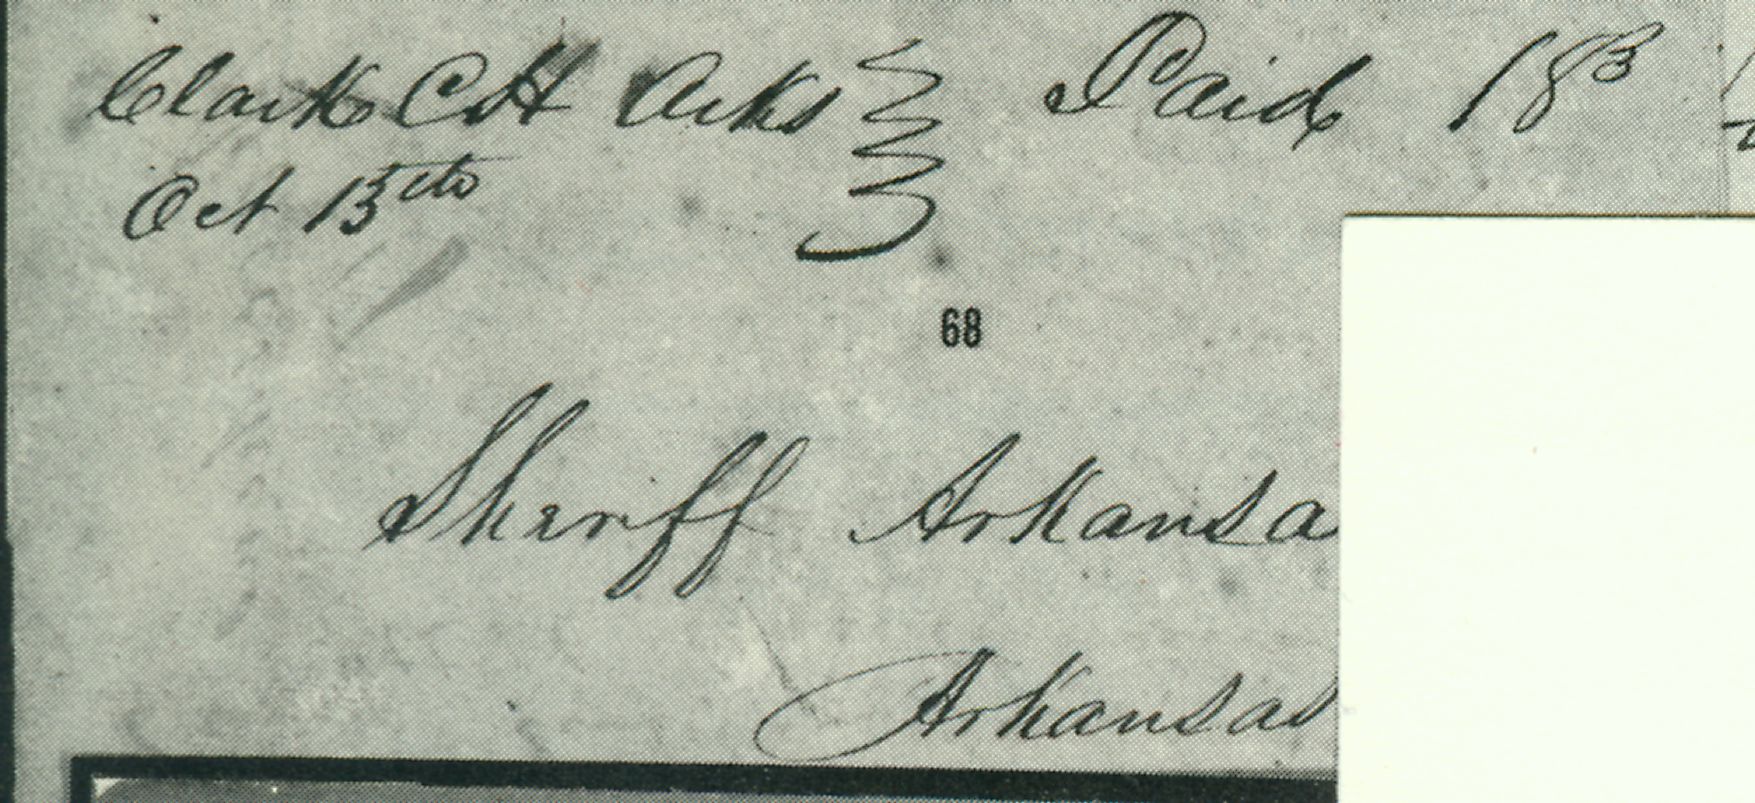 Clark CH Arks } Paid 18
Oct 15th
68
Sheriff Arkansa
Arkansas